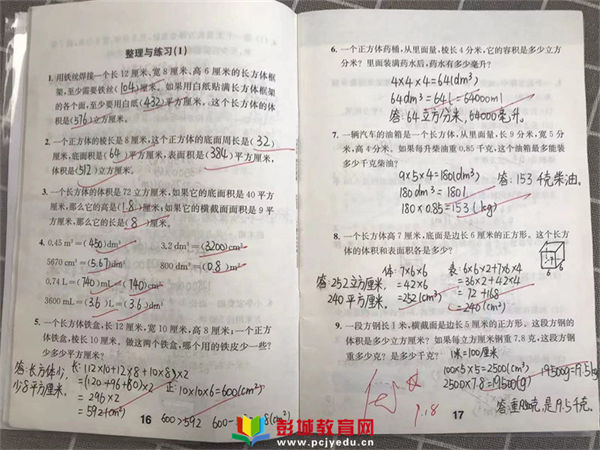 整理与练习(1)
1. 用铁丝焊接一个长12厘米、宽8厘米、高6厘米的长方体框
架,至少需要铁丝(104)厘米。如果用白纸贴满长方体框架
的各个面,至少要用白纸(432)平方厘米。这个长方体的体
积是(576)立方厘米。
2. 一个正方体的棱长是8厘米,这个正方体的底面周长是(32)
厘米,底面积是(64)平方厘米,表面积是(384)平方厘米,
体积是(512)立方厘米。
3. 一个长方体的体积是72立方厘米,如果它的底面积是40平
方厘米,那么它的高是(1.8)厘米;如果它的横截面面积是9平
方厘米,那么它的长是(8)厘米。
4. 0.45 m³=(450)dm³ 3.2 dm³=(3200)cm³
5670 cm³=(5.67)dm³ 800 dm³=(0.8)m³
0.74 L=(740)mL=(740)cm³
3600 mL=(3.6)L=(3.6)dm³
5. 一个长方体铁盒,长12厘米,宽10厘米,高8厘米;一个正方
体铁盒,棱长10厘米。做这两个铁盒,哪个用的铁皮少一些?
少多少平方厘米?
答:长方体少,
少8平方厘米。
长:(12×10+12×8+10×8)×2
=(120+96+80)×2
=296×2
=592(cm²)
正:10×10×6=600(cm²)
600>592 600-
8(cm²)
16
6. 一个正方体药桶,从里面量,棱长4分米,它的容积是多少立方
分米?里面装满药水后,药水有多少毫升?
4×4×4=64(dm³)
64dm³=64L=64000ml
答:64立方分米,64000毫升。
7. 一辆汽车的油箱是一个长方体,从里面量,长9分米,宽5分
米,高4分米。如果每升柴油重0.85千克,这个油箱最多能装
多少千克柴油?
9×5×4=180(dm³)
180dm³=180l
180×0.85=153(kg)
答:153千克柴油。
8. 一个长方体高7厘米,底面是边长6厘米的正方形。这个长方
体的体积和表面积各是多少?
体:7×6×6
=42×6
=252(cm³)
表:6×6×2+7×6×4
=36×2+42×4
=72+168
=240(cm²)
答:252立方厘米,
240平方厘米。
7
6
6
9. 一段方钢长1米,横截面是边长5厘米的正方形。这段方钢的
体积是多少立方厘米?如果每立方厘米钢重7.8克,这段方钢
重多少克?是多少千克?
1米=100厘米
100×5×5=2500(cm³)
2500×7.8=19500(g)
19500g=19.5kg
是19.5千克。
17
彭城教育网
www.pcjyedu.cn